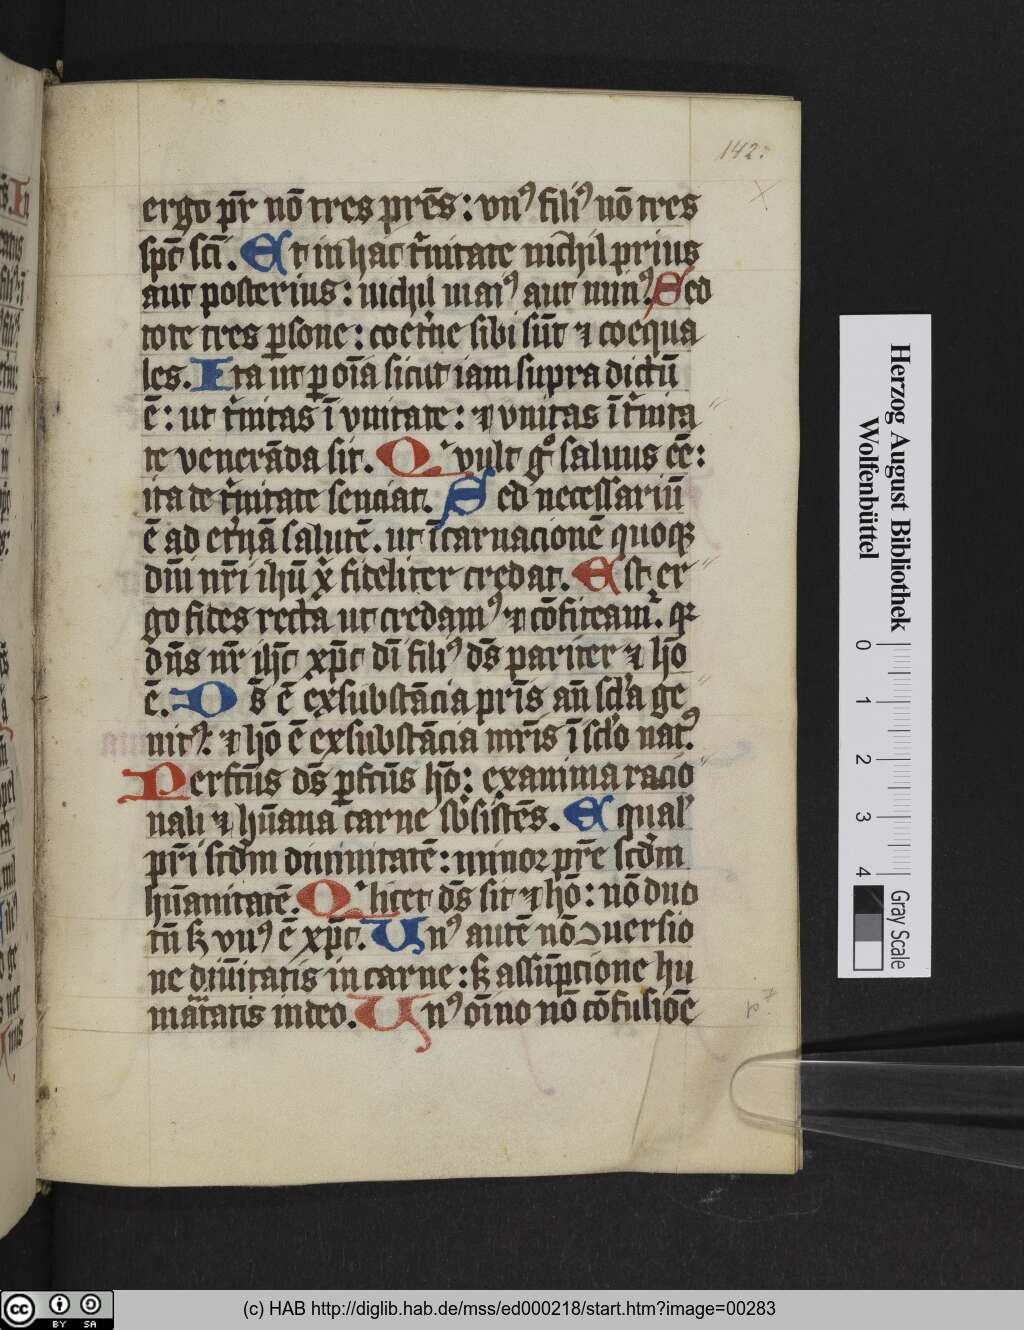 142.
ergo pr̄ nō tres prēs : vnꝰ filiꝰ nō tres
spc̄ scī . Et in hac tⁱnitate nichil prius
aut posterius : nichil maiꝰ aut minꝰ. Sed
tote tres ꝑsone : coet̄ne sibi sūt ⁊ coequa
les. Ita ut ꝑ oīa sicut iam supra dictū
ē : ut tⁱnitas ī vnitate : ⁊ vnitas ī tⁱnita
te venerāda sit. Qⁱ vult gͦ saluus eē :
ita de tⁱnitate senciat. Sed necessariū
ē ad et̄nā salutē. ut īcarnacionē quoqꝫ
dn̄i nr̄i ihū x̄ fideliter credat. Est er
go fides recta ut credamꝰ ⁊ cōfiteam̄. qꝫ
dn̄s nr̄ ihc̄ xp̄c dī filiꝰ ds̄ pariter ⁊ hō
ē. Ds̄ ē exsubstācia prīs an̄ scl̄a ge
nitꝰ: ⁊ hō ē exsubstācia mr̄is ī scl̄o natꝰ.
Perfcūs ds̄ ꝑfcūs hō : exanima racio
nali ⁊ hūana carne sb̄sistēs. Equal̄
pr̄i scd̄m diuinitatē : minor pr̄e scd̄m
hūanitatē. Qⁱ licet ds̄ sit ⁊ hō : nō duo
tn̄ sꝫ vnꝰ ē xp̄c. Unꝰ autē nō ꝯuersio
ne diuītatis in carne : sꝫ assūpcione hu
manitatis in deo. Unꝰ oīno nō cōfusiōe
Herzog August Bibliothek
Wolfenbüttel
0 1 2 3 4
Gray Scale
cc BY SA
(c) HAB http://diglib.hab.de/mss/ed000218/start.htm?image=00283